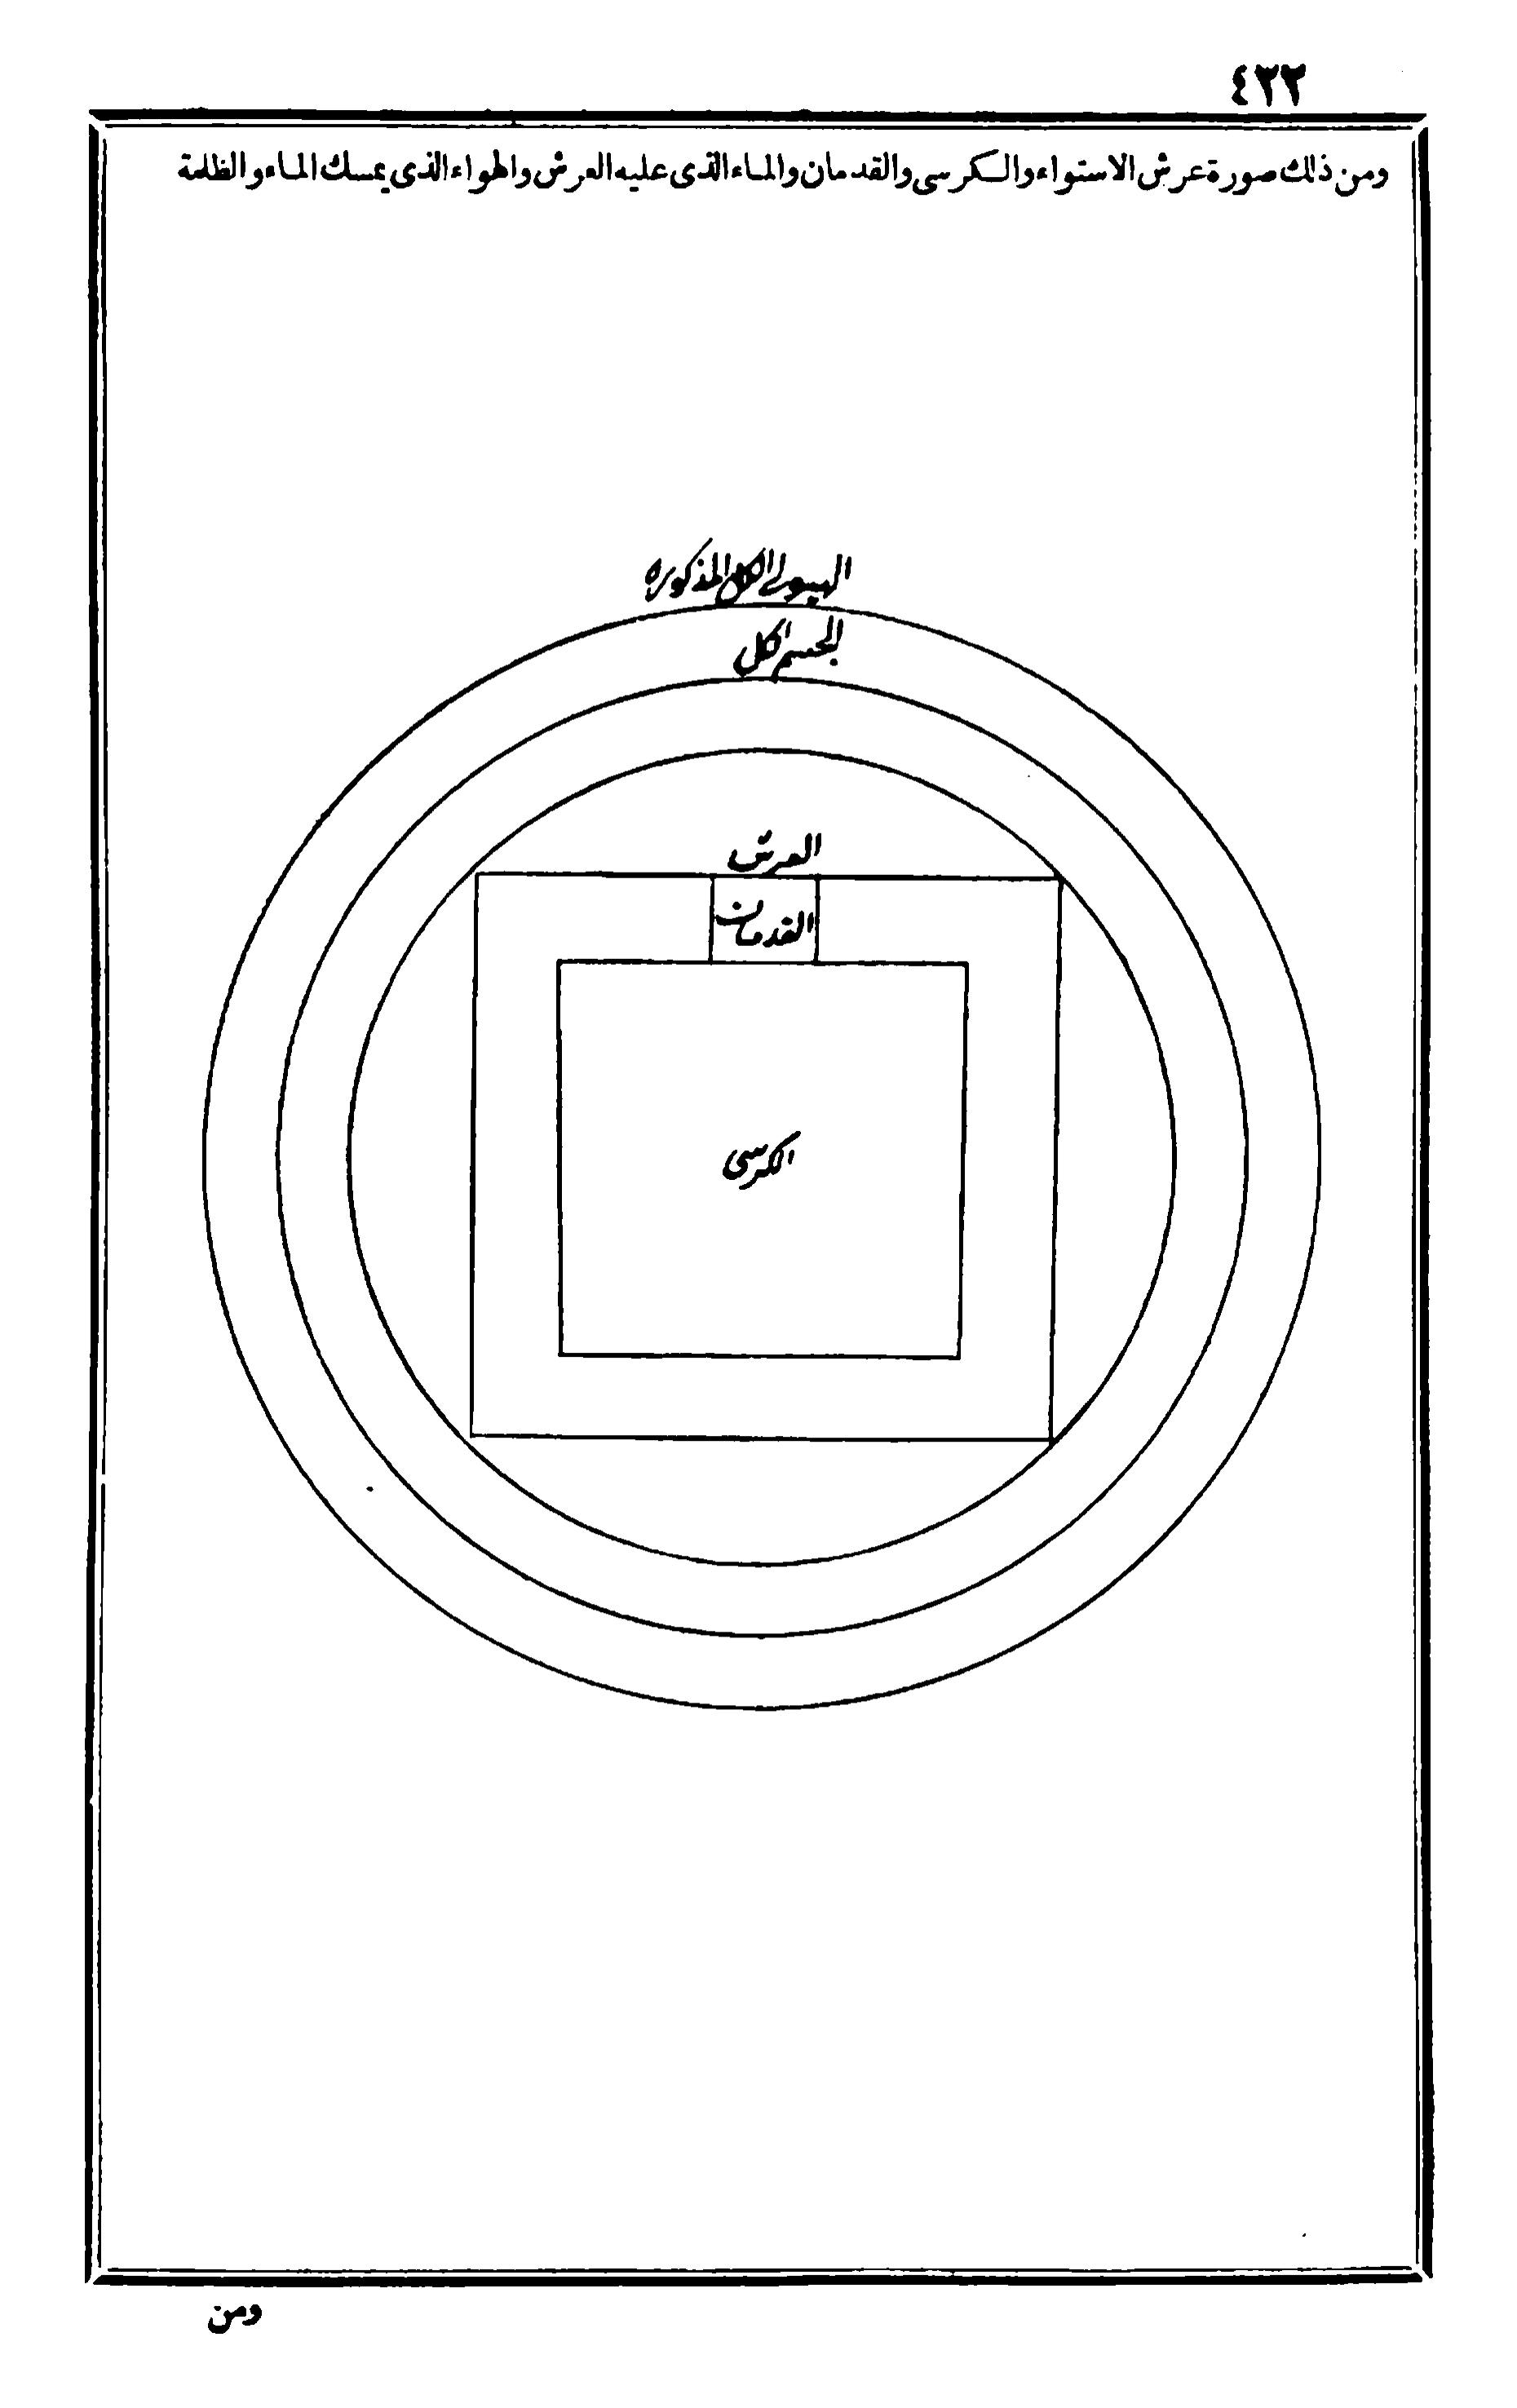 ٤٢٢
ومن ذلك صورة عرش الاستواء والكرسى والقدمان والماء الذى عليه العرش والهواء الذى يمسك الماء والظلمة
الهيولى الكل المذكوره
الجسم الكل
العرش
القدمان
الكرسى
ومن